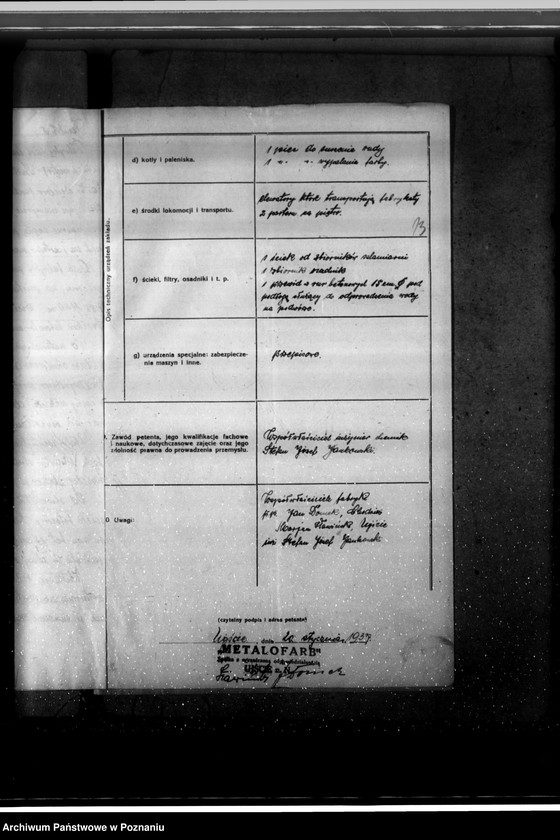 Opis techniczny urządzeń zakładu.
d) kotły i paleniska.
1 piec do suszenia rudy
1 -"- -"- wypalania farby.
e) środki lokomocji i transportu.
elewatory które transportują fabrykaty
z parteru na piętro.
13
f) ścieki, filtry, osadniki i t. p.
1 ściek od zbiorników szlamiarni
1 zbiornik osadnik
1 przewód z rur betonowych 15 cm Ø pod
podłogą służący do odprowadzenia wody
na podwórze.
g) urządzenia specjalne: zabezpiecze-
nia maszyn i inne.
9. Zawód petenta, jego kwalifikacje fachowe
i naukowe, dotychczasowe zajęcie oraz jego
zdolność prawna do prowadzenia przemysłu.
Współwłaściciel inżynier chemik
Stefan Józef Jankowski.
10. Uwagi:
Współwłaściciele fabryki
Jan
Marjan Ujście
inż Stefan Józef Jankowski
(czytelny podpis i adres petenta)
Ujście dnia 20 stycznia 1937
"METALOFARB"
Spółka z ograniczoną odpowiedzialnością
UJŚCIE
Archiwum Państwowe w Poznaniu